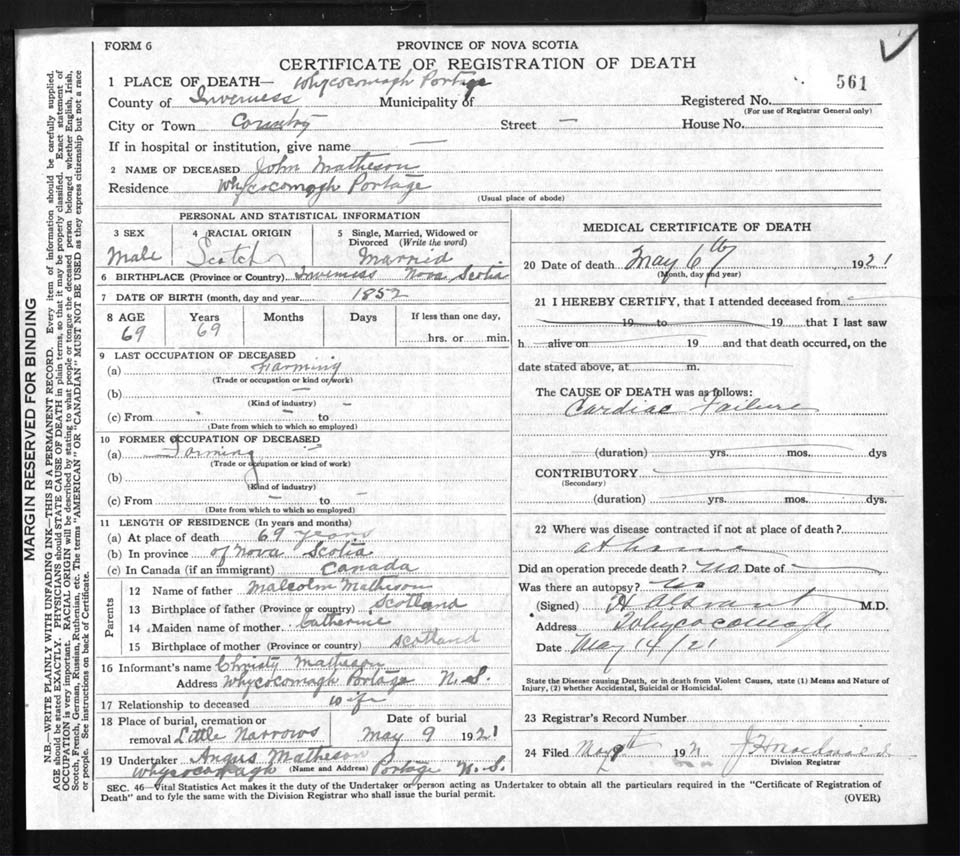 FORM 6
PROVINCE OF NOVA SCOTIA
CERTIFICATE OF REGISTRATION OF DEATH
561
1 PLACE OF DEATH— Whycocomagh Portage
County of Inverness Municipality of Registered No.
(For use of Registrar General only)
City or Town Country Street — House No.
If in hospital or institution, give name —
2 NAME OF DECEASED John Matheson
Residence Whycocomagh Portage
(Usual place of abode)
PERSONAL AND STATISTICAL INFORMATION
3 SEX Male
4 RACIAL ORIGIN Scotch
5 Single, Married, Widowed or Divorced (Write the word) Married
6 BIRTHPLACE (Province or Country) Inverness Nova Scotia
7 DATE OF BIRTH (month, day and year) 1852
8 AGE 69 Years 69 Months Days If less than one day, hrs. or min.
9 LAST OCCUPATION OF DECEASED
(a) Farming
(Trade or occupation or kind of work)
(b) —
(Kind of industry)
(c) From — to —
(Date from which to which so employed)
10 FORMER OCCUPATION OF DECEASED
(a) Farming
(Trade or occupation or kind of work)
(b)
(Kind of industry)
(c) From — to —
(Date from which to which so employed)
11 LENGTH OF RESIDENCE (In years and months)
(a) At place of death 69 years
(b) In province of Nova Scotia
(c) In Canada (if an immigrant) Canada
Parents
12 Name of father Malcolm Mathison
13 Birthplace of father (Province or country) Scotland
14 Maiden name of mother Catherine
15 Birthplace of mother (Province or country) Scotland
16 Informant's name Christy Matheson
Address Whycocomagh Portage N. S.
17 Relationship to deceased wife
18 Place of burial, cremation or removal Little Narrows
Date of burial May 9 1921
19 Undertaker Angus Matheson
(Name and Address) Whycocomagh Portage N. S.
MEDICAL CERTIFICATE OF DEATH
20 Date of death May 6th 1921
(Month, day and year)
21 I HEREBY CERTIFY, that I attended deceased from
19 to 19 that I last saw
h alive on 19 and that death occurred, on the
date stated above, at m.
The CAUSE OF DEATH was as follows:
Cardiac Failure
(duration) yrs. mos. dys
CONTRIBUTORY
(Secondary)
(duration) yrs. mos. dys.
22 Where was disease contracted if not at place of death?
at home
Did an operation precede death? No Date of —
Was there an autopsy? No
(Signed) M.D.
Address Whycocomagh
Date May 14/21
State the Disease causing Death, or in death from Violent Causes, state (1) Means and Nature of
Injury, (2) whether Accidental, Suicidal or Homicidal.
23 Registrar's Record Number
24 Filed May 1921
Division Registrar
SEC. 46—Vital Statistics Act makes it the duty of the Undertaker or person acting as Undertaker to obtain all the particulars required in the "Certificate of Registration of
Death" and to fyle the same with the Division Registrar who shall issue the burial permit.
(OVER)
MARGIN RESERVED FOR BINDING
N.B.—WRITE PLAINLY WITH UNFADING INK—THIS IS A PERMANENT RECORD. Every item of information should be carefully supplied.
AGE should be stated EXACTLY. PHYSICIANS should STATE CAUSE OF DEATH in plain terms, so that it may be properly classified. Exact statement of
OCCUPATION is very important. RACIAL ORIGIN will be described by stating to what people or tongue the deceased person belonged whether English, Irish,
Scotch, French, German, Russian, Ruthenian, etc. The terms "AMERICAN" OR "CANADIAN" MUST NOT BE USED as they express citizenship but not a race
or people. See instructions on back of Certificate.